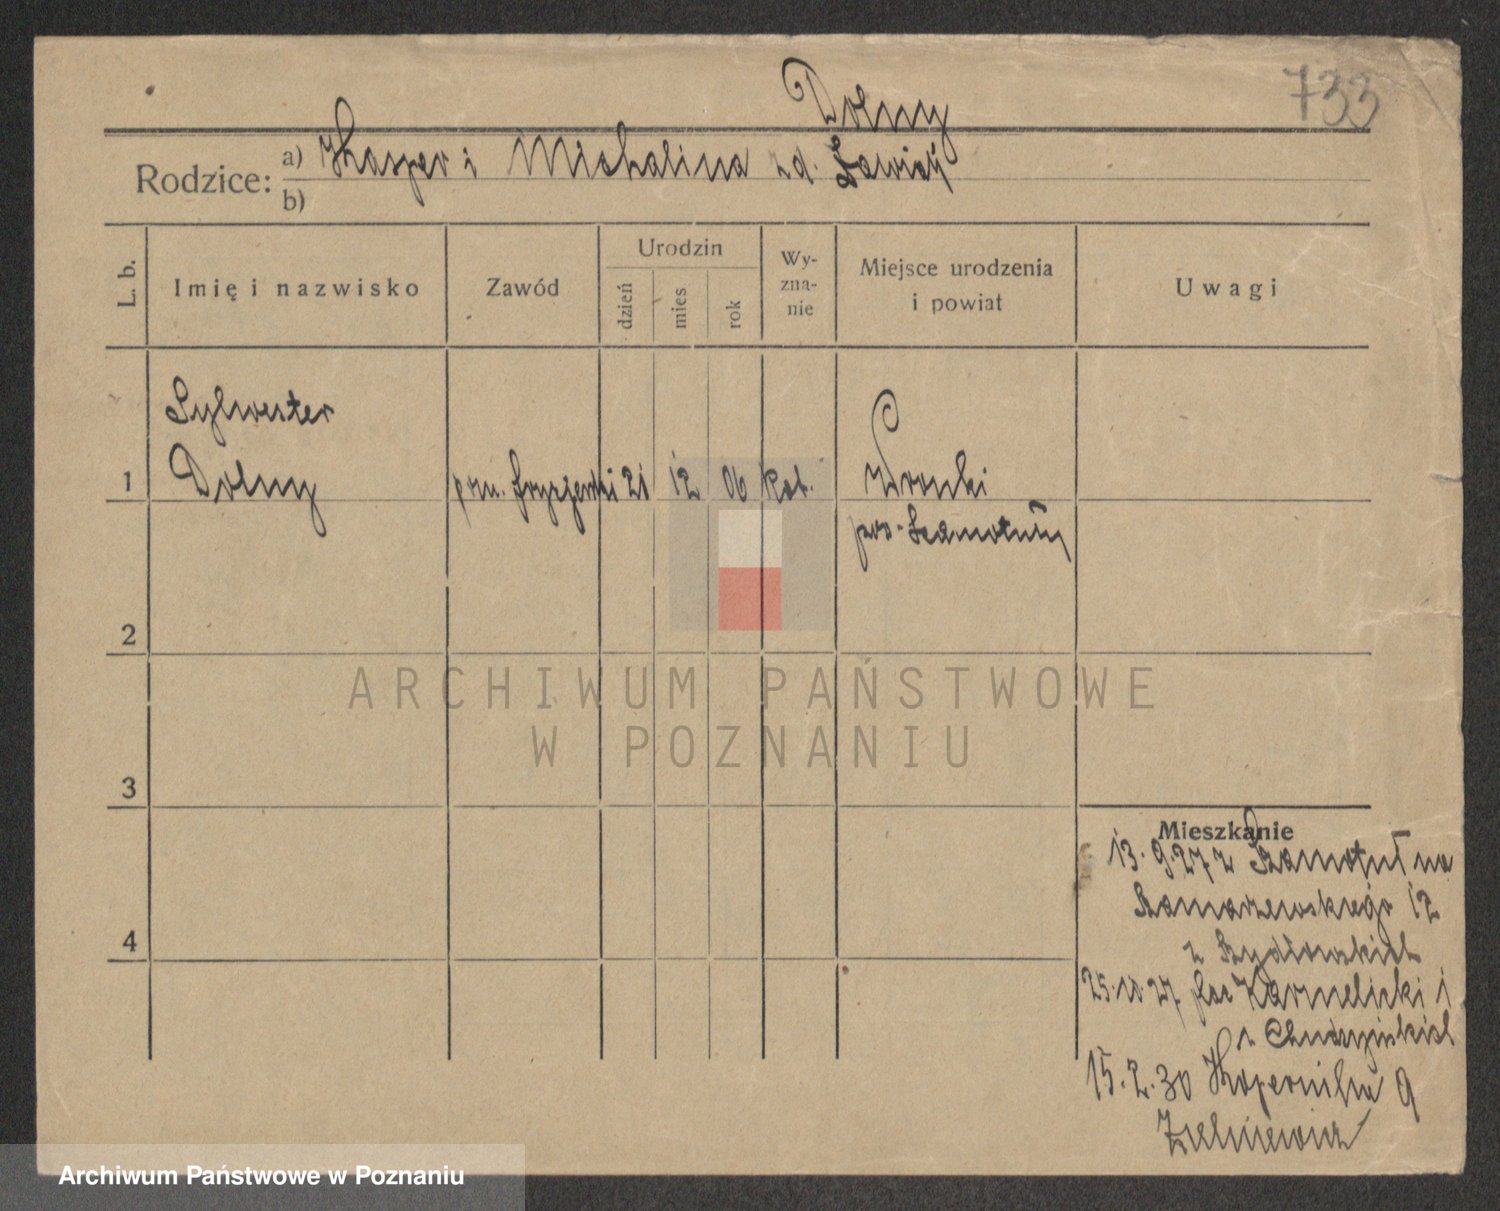 733
Dolny
Rodzice: a) Kasper i Michalina zd.
b)
L. b.
Imię i nazwisko
Zawód
Urodzin
dzień
mies
rok
Wy-
zna-
nie
Miejsce urodzenia
i powiat
Uwagi
Sylwester
1 Dolny pom. fryzjerski 21 12 06 kat. Wronki
pow. Szamotuły
2
3
4
Mieszkanie
13.9.27 z Szamotuł na
Szamarzewskiego 12
z Szydłowskich
25.10.27 plac Karmelicki 1
15.2.30 Kopernika 9
ARCHIWUM PAŃSTWOWE
W POZNANIU
Archiwum Państwowe w Poznaniu